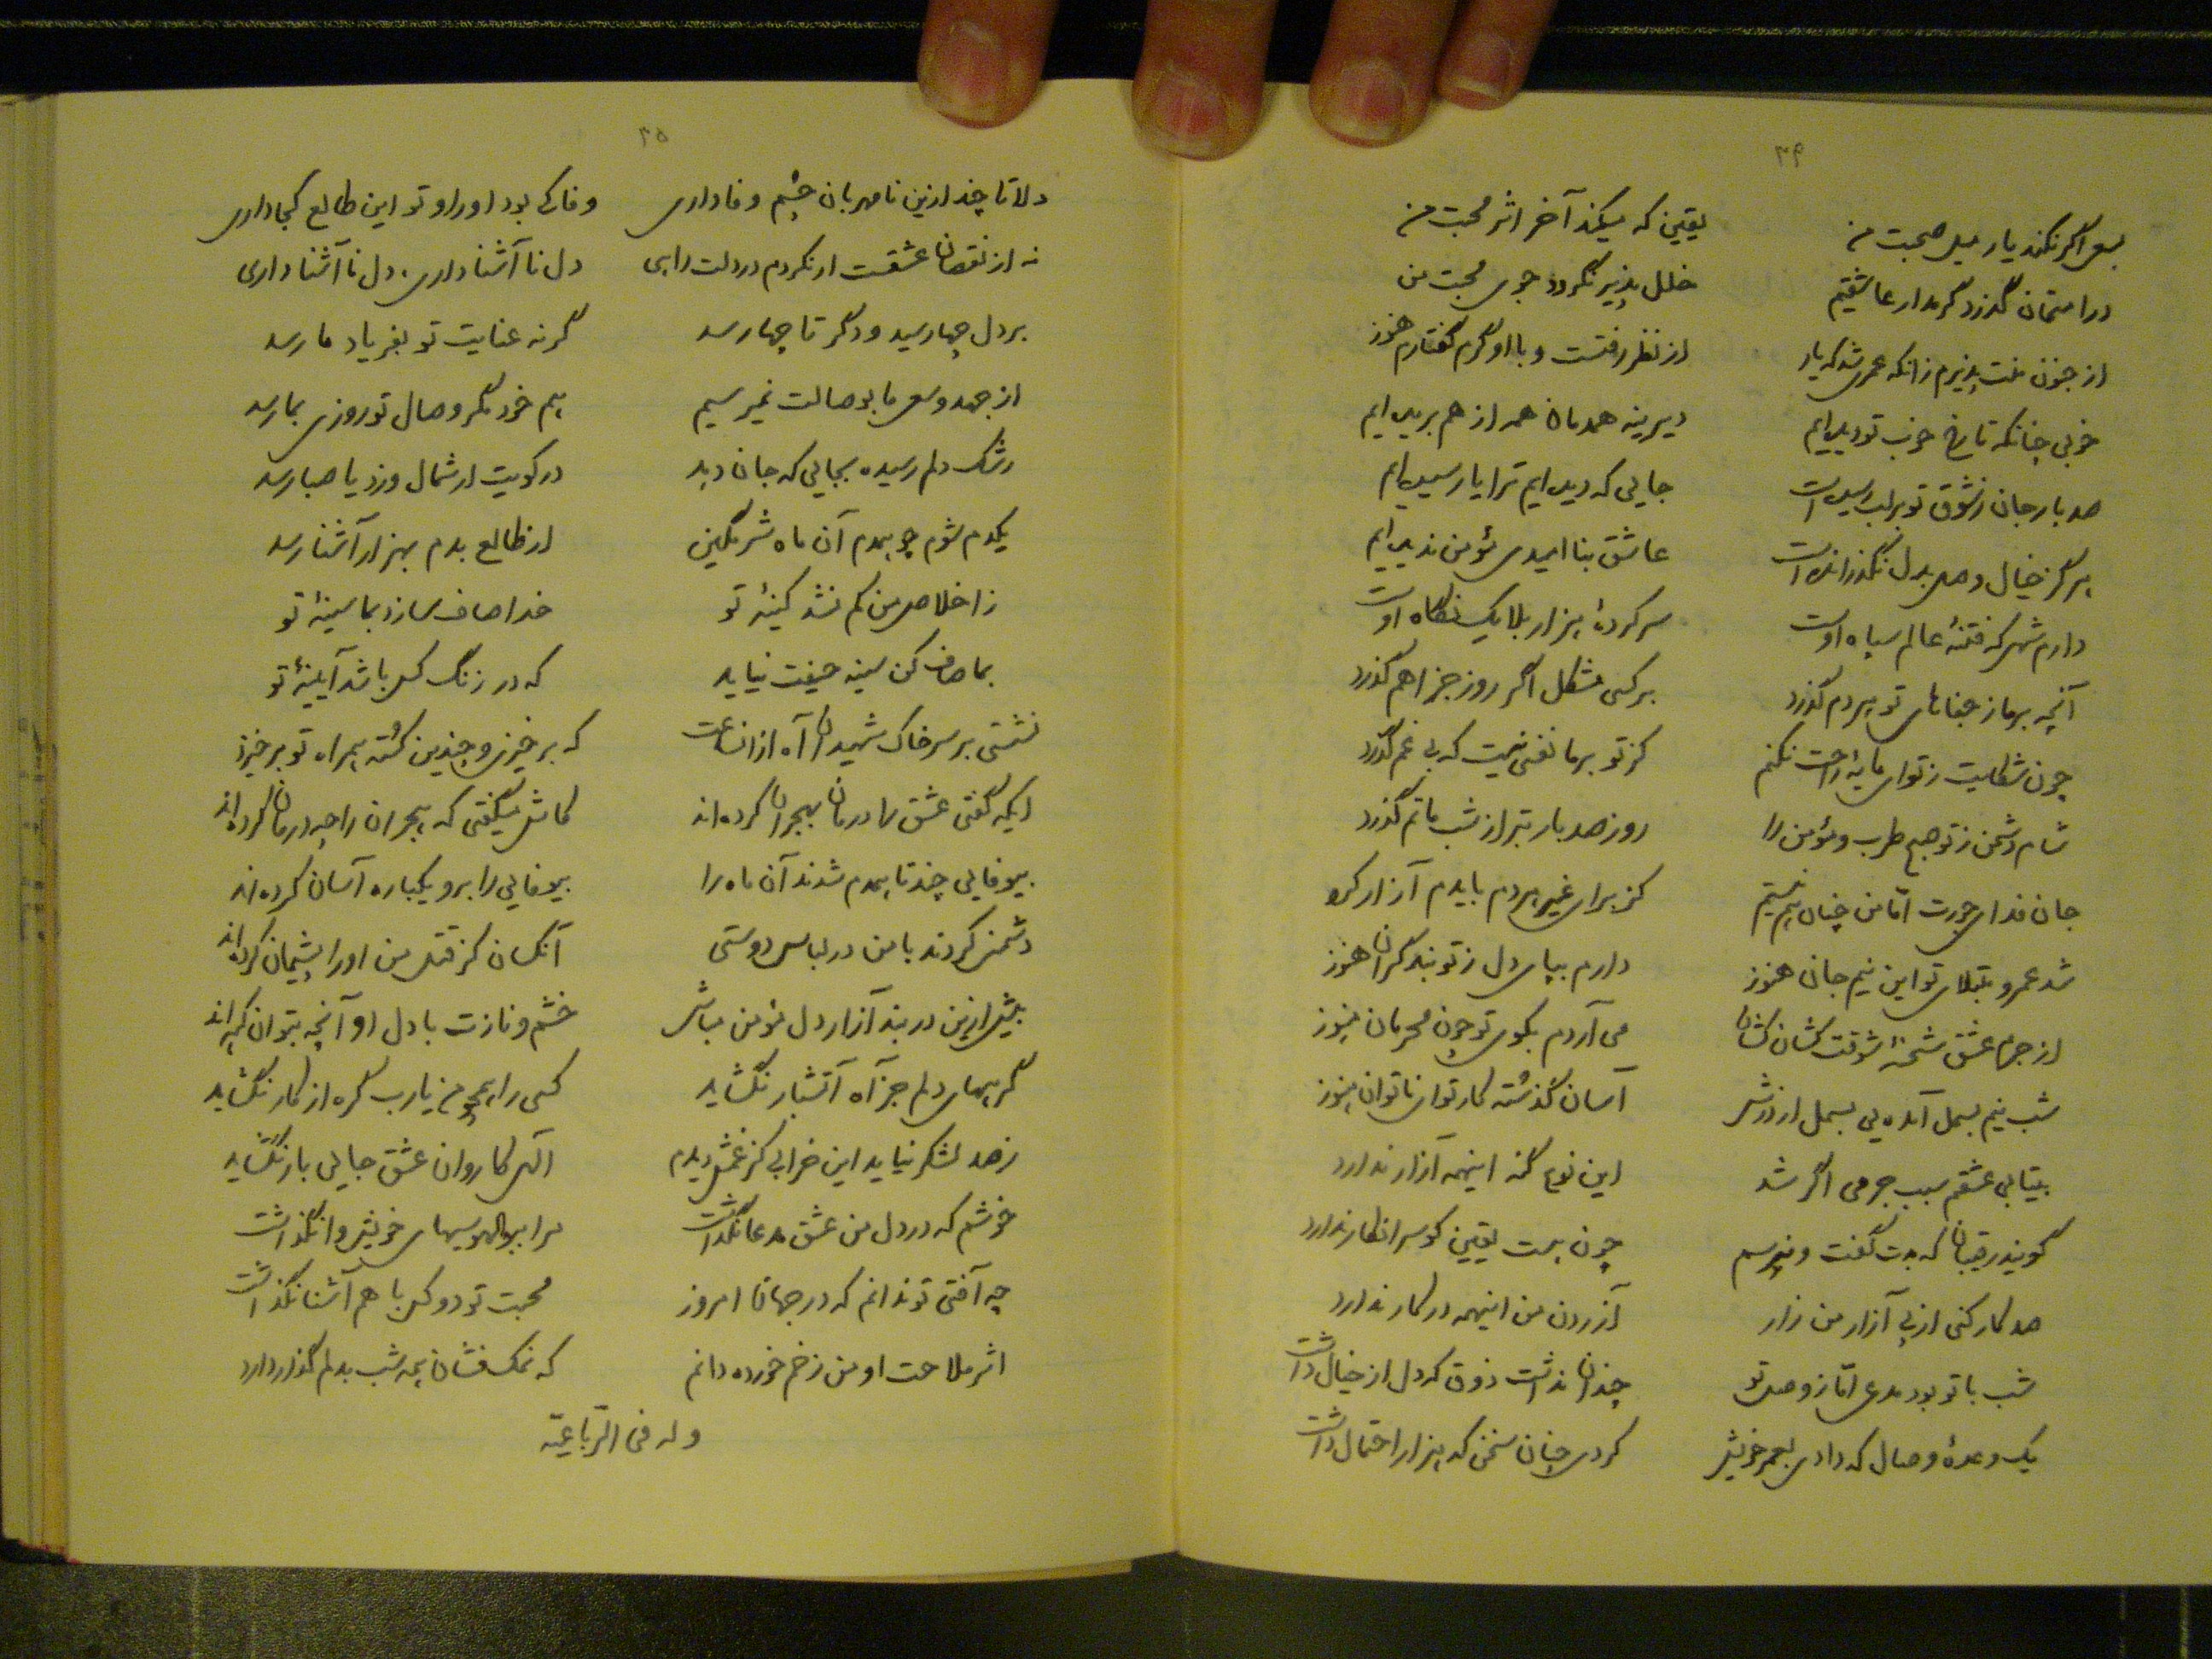 ۳۹
اگر نکند یار میل صحبت من یقین که میکند آخر اثر محبت من
در امتحان گذرد گر مدار عاشقیم خلل پذیر نگردد جوی محبت من
از جنون منت پذیرم زانکه عمری شد که یار از نظر رفتست و با او گرم گفتارم هنوز
خوبی چنانکه تا رخ خوب تو دیده‌ایم دیرینه همدمان همه از هم بریده‌ایم
صد بار جان ز شوق تو بر لب رسیده است جایی که دیده‌ایم ترا یا رسیده‌ایم
هرگز خیال وصل بدل نگذرانده است عاشق بنا امیدی مؤمن ندیده‌ایم
دارم شهی که فتنهٔ عالم سپاه اوست سر کردهٔ هزار بلا یک نگاه اوست
آنچه بر ما ز جفاهای تو هر دم گذرد بر کسی مشکل اگر روز جزا هم گذرد
چون شکایت ز تو ای مایهٔ راحت نکنم کز تو بر ما نفسی نیست که بی غم گذرد
شام دشمن ز تو صبح طرب و مؤمن را روز صد بار بتر از شب ماتم گذرد
جان فدای جورت اما من چنان هم نیستم کز برای غیر هر دم بایدم آزار کرد
شد عمر و مبتلای تو این نیم جان هنوز دارم بپای دل ز تو بند گران هنوز
از جرم عشق شحنهٔ شوقت کشان کشان می آردم بکوی تو چون مجرمان هنوز
شب نیم بسمل آمده بی بسمل از درش آسان گذشته کار تو ای ناتوان هنوز
بیتابی عشقم سبب جرمی اگر شد این نوع گنه اینهمه آزار ندارد
گویند رقیبان که بدت گفت و نپرسم چون هست یقین کو سر انکار ندارد
صد کار کنی از پی آزار من زار آزردن من اینهمه در کار ندارد
شب با تو بود مدعی اما ز وصل تو چندان نداشت ذوق که دل از خیال داشت
یک وعدهٔ وصال که دادی بعمر خویش کردی چنان سخن که هزار احتمال داشت
۴۰
دلا تا چند ازین نامهربان چشم وفا داری وفا کی بود او را و تو این طالع کجا داری
نه از نقصان عشقست ار نکردم در دلت راهی دل ناآشنا داری، دل ناآشنا داری
بر دل چها رسید و دگر تا چها رسد گر نه عنایت تو بفریاد ما رسد
از جهد و سعی ما بوصالت نمیرسیم هم خود مگر وصال تو روزی بما رسد
رشک دلم رسیده بجایی که جان دهد در کویت ار شمال وزد یا صبا رسد
یکدم شوم چو همدم آن ماه شرمگین از طالع بدم بهزار آشنا رسد
ز اخلاص من کم نشد کینهٔ تو خدا صاف سازد بما سینهٔ تو
بما صاف کن سینه حیفت نیاید که در زنگ کس باشد آیینهٔ تو
نشستی بر سر خاک شهیدان آه از آن ساعت که برخیزی و چندین کشته همراه تو برخیزد
ایکه گفتی عشق را درمان بهجران کرده‌اند کاش میگفتی که هجران را چه درمان کرده‌اند
بیوفایی چند تا همدم شدند آن ماه را بیوفایی را برو یکباره آسان کرده‌اند
دشمنی کردند با من در لباس دوستی آنکسان کز قتل من او را پشیمان کرده‌اند
بیش ازین در بند آزار دل مؤمن مباش خشم و نازت با دل او آنچه بتوان کرده‌اند
گرههای دلم جز آه آتشبار نگشاید کسی را همچو من یارب گره از کار نگشاید
ز صد لشکر نیاید این خرابی کز غمش دیدم الهی کاروان عشق جایی بار نگشاید
خوشم که در دل من عشق مدعا نگذاشت مرا ببوالهوسیهای خویش وا نگذاشت
چه آفتی تو ندانم که در جهان امروز محبت تو دو کس با هم آشنا نگذاشت
اثر ملاحت او من زخم خورده دانم که نمک فشان همه شب بدلم گذار دارد
وله فی الرباعیة